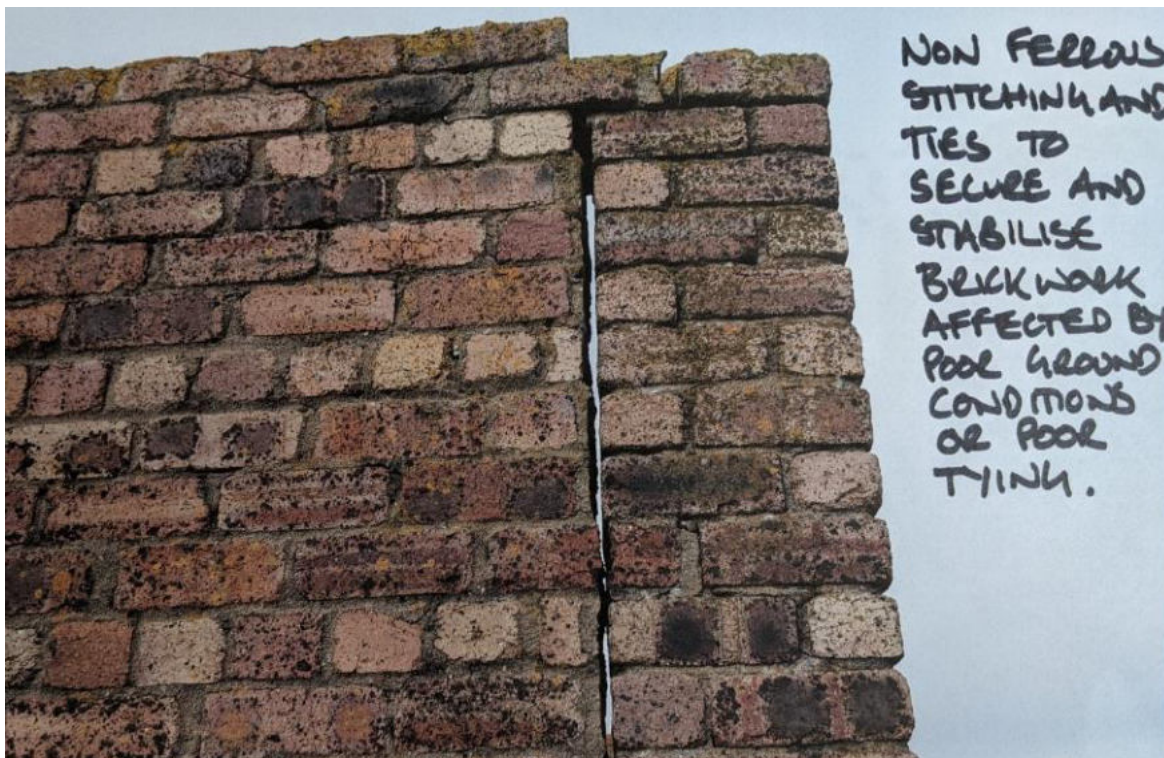 NON FERROUS
STITCHING AND
TIES TO
SECURE AND
STABILISE
BRICKWORK
AFFECTED BY
POOR GROUND
CONDITIONS
OR POOR
TYING.